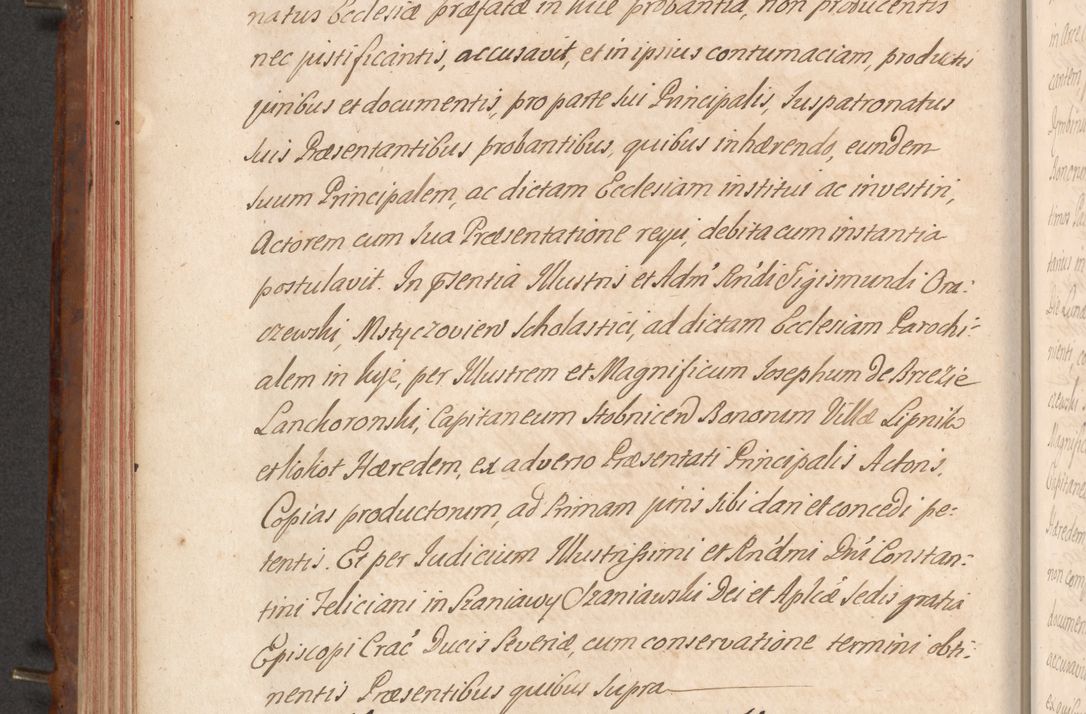 natus Ecclesiæ præfatæ in huie probantia, non producentis
nec justificantis, accusavit, et in ipsius contumaciam, productis
juribus et documentis, pro parte sui Principalis, Juspatronatus
suis Præsentantibus probantibus, quibus inhærendo, eundem
suum Principalem, ac dictam Ecclesiam institui ac investiri,
Actorem cum sua Præsentatione rejici, debita cum instantia
postulavit. In pñsentia Illustris et Adm̃ Rńdi Sigismundi Ora-
czewski, Mstyczovien̄ Scholastici, ad dictam Ecclesiam Parochi-
alem in huje, per Illustrem et Magnificum Josephum de Brzezie
Lanckoronski, Capitaneum Stobnicen̄ Bonorum Villæ Lipnik
et Kokot Hæredem, ex adverso Præsentati Principalis Actoris,
Copias productorum, ad Primam juris sibi dari et concedi pe-
tentis. Et per Judicium Illustrissimi et Rńdmi Dńi Constan-
tini Feliciani in Szaniawy Szaniawski Dei et Aplicæ Sedis gratia
Episcopi Crac̃ Ducis Severiæ, cum conservatione termini obti-
nentis Præsentibus quibus supra